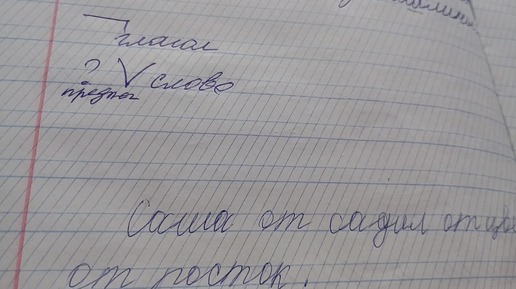 глагол
? V слово
предлог
Саша от садил от
от росток.